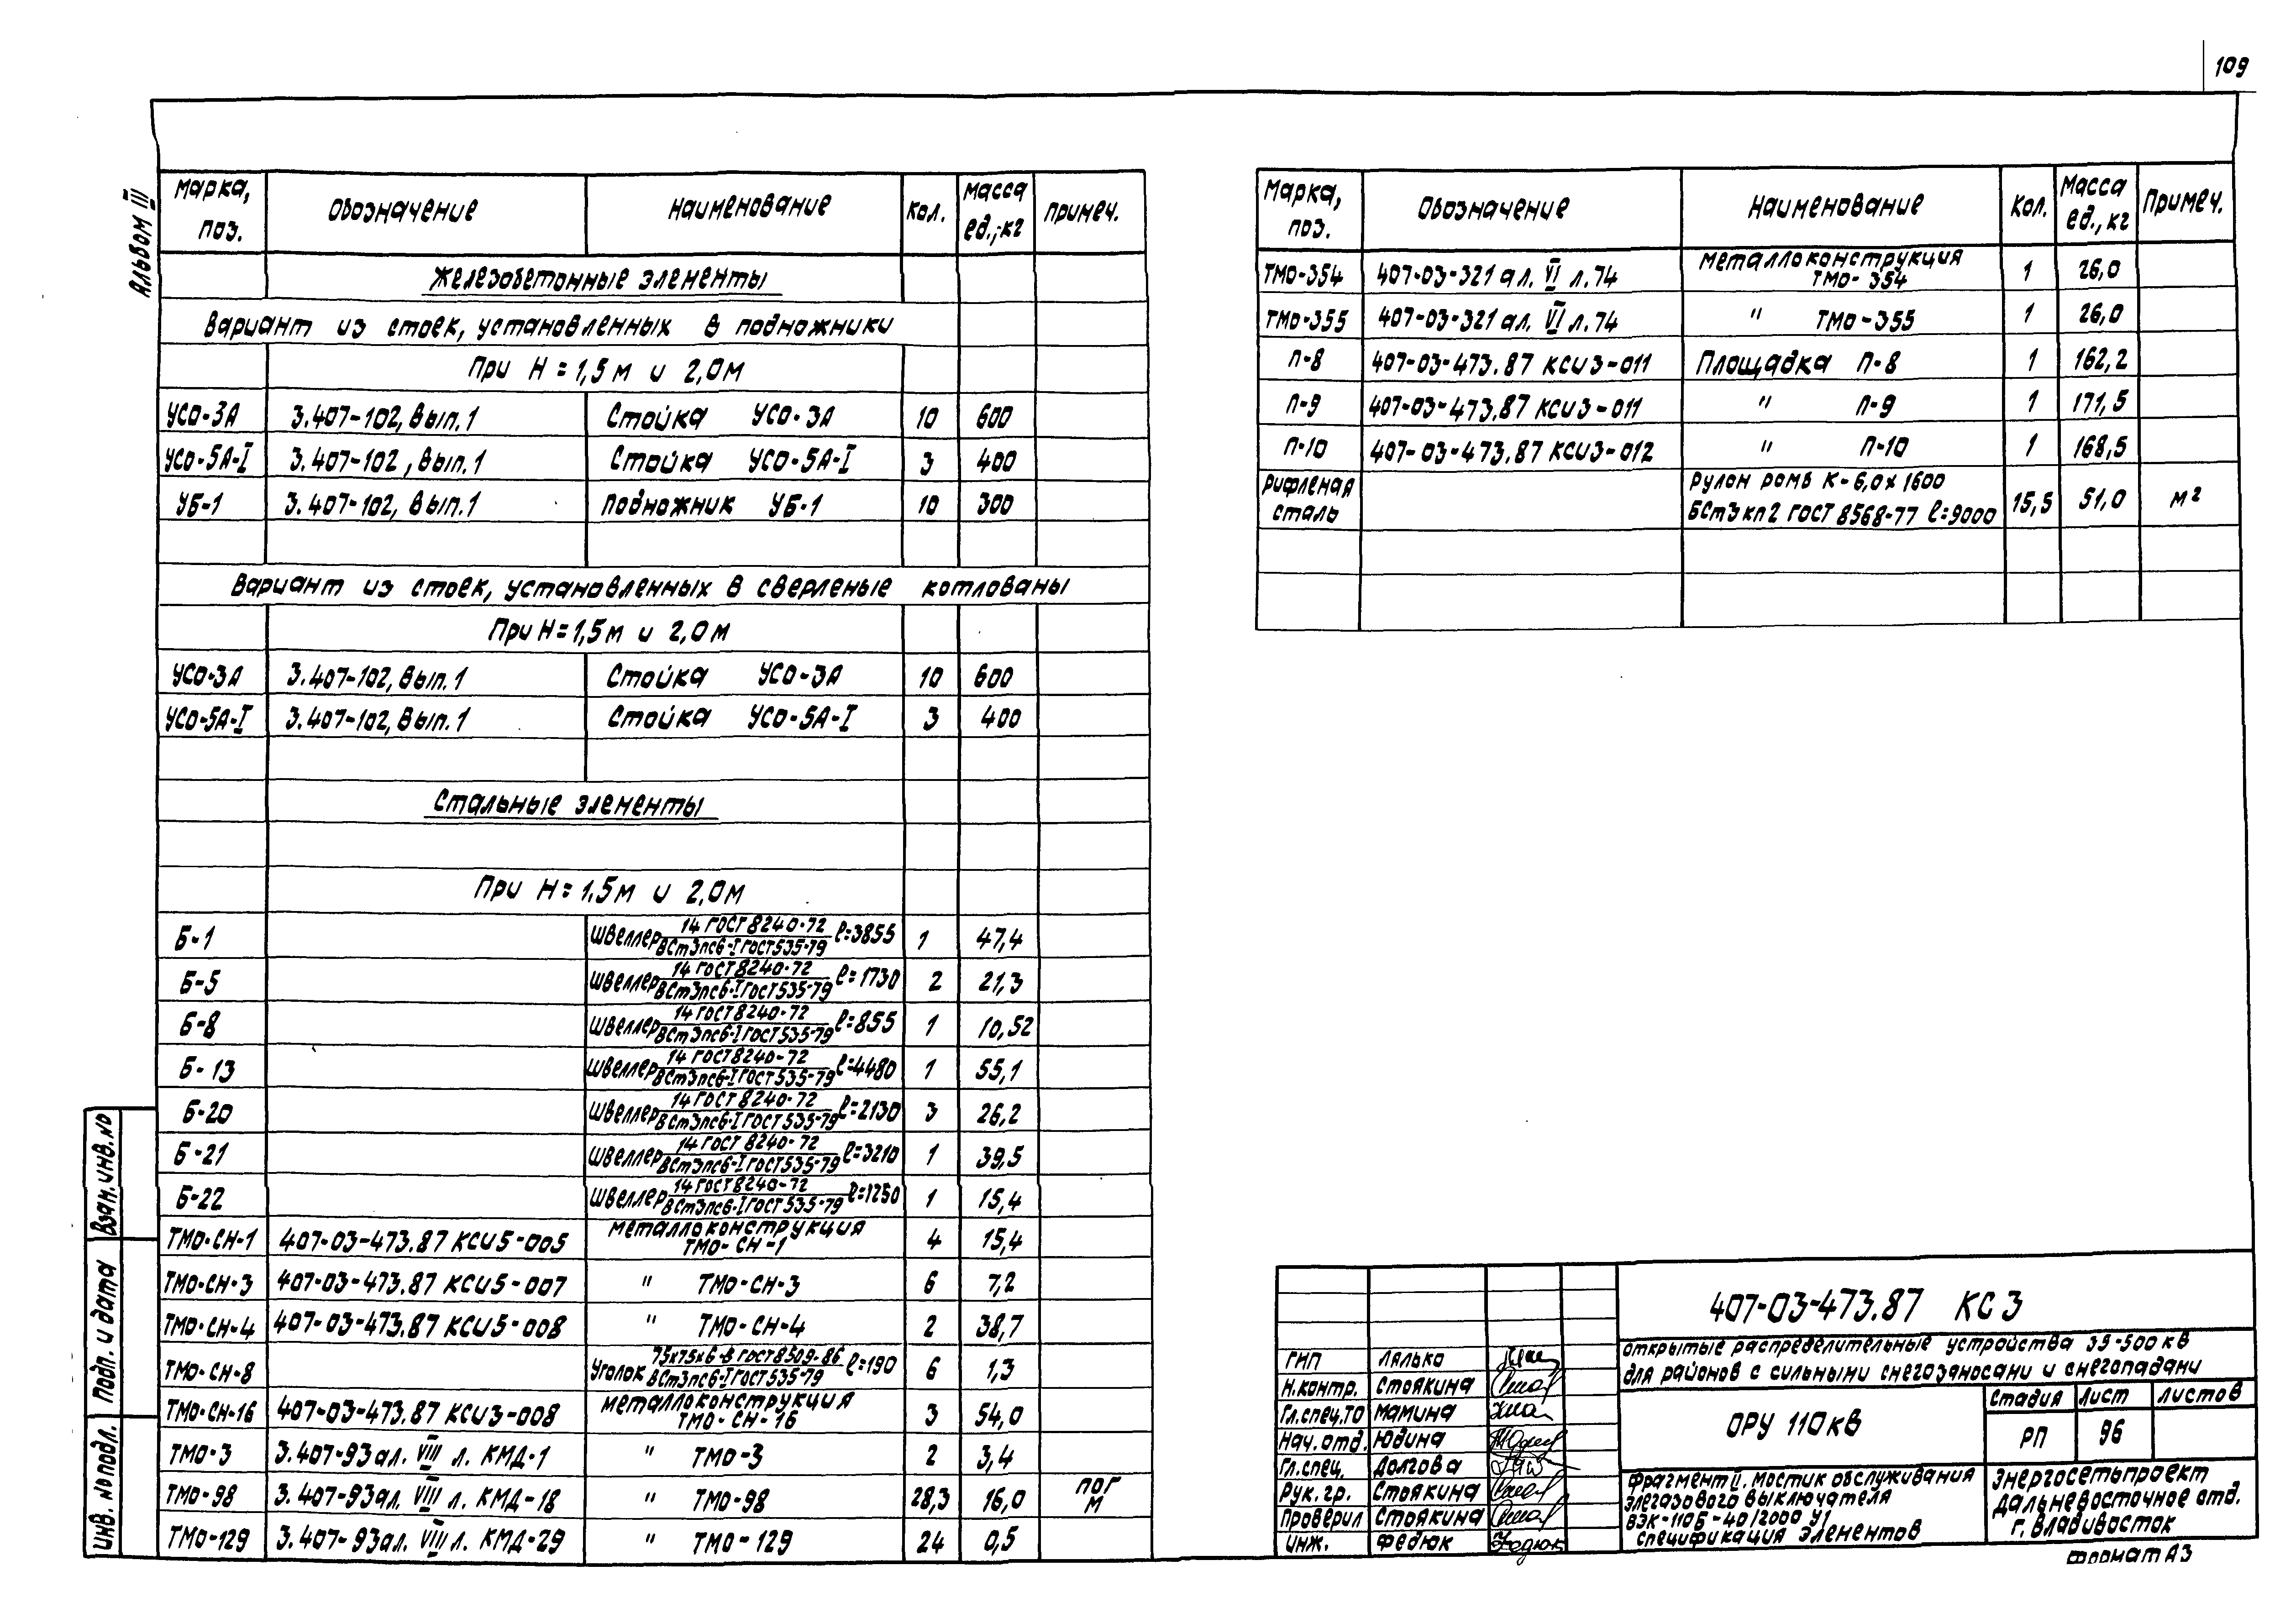 109
Альбом III
Марка, поз. Обозначение Наименование Кол. Масса ед., кг Примеч.
Железобетонные элементы
Вариант из стоек, установленных в подножники
При Н = 1,5 м и 2,0 м
УСО-3А 3.407-102, вып. 1 Стойка УСО-3А 10 600
УСО-5А-I 3.407-102, вып. 1 Стойка УСО-5А-I 3 400
УБ-1 3.407-102, вып. 1 Подножник УБ-1 10 300
Вариант из стоек, установленных в сверленые котлованы
При Н = 1,5 м и 2,0 м
УСО-3А 3.407-102, вып. 1 Стойка УСО-3А 10 600
УСО-5А-I 3.407-102, вып. 1 Стойка УСО-5А-I 3 400
Стальные элементы
При Н = 1,5 м и 2,0 м
Б-1 Швеллер 14 ГОСТ 8240-72 / ВСт3пс6-I ГОСТ 535-79 ℓ=3855 1 47,4
Б-5 Швеллер 14 ГОСТ 8240-72 / ВСт3пс6-I ГОСТ 535-79 ℓ=1730 2 21,3
Б-8 Швеллер 14 ГОСТ 8240-72 / ВСт3пс6-I ГОСТ 535-79 ℓ=855 1 10,52
Б-13 Швеллер 14 ГОСТ 8240-72 / ВСт3пс6-I ГОСТ 535-79 ℓ=4480 1 55,1
Б-20 Швеллер 14 ГОСТ 8240-72 / ВСт3пс6-I ГОСТ 535-79 ℓ=2130 3 26,2
Б-21 Швеллер 14 ГОСТ 8240-72 / ВСт3пс6-I ГОСТ 535-79 ℓ=3210 1 39,5
Б-22 Швеллер 14 ГОСТ 8240-72 / ВСт3пс6-I ГОСТ 535-79 ℓ=1250 1 15,4
ТМО-СН-1 407-03-473.87 КСИ5-005 Металлоконструкция ТМО-СН-1 4 15,4
ТМО-СН-3 407-03-473.87 КСИ5-007 " ТМО-СН-3 6 7,2
ТМО-СН-4 407-03-473.87 КСИ5-008 " ТМО-СН-4 2 38,7
ТМО-СН-8 Уголок 75х75х6-В ГОСТ 8509-86 / ВСт3пс6-I ГОСТ 535-79 ℓ=190 6 1,3
ТМО-СН-16 407-03-473.87 КСИ3-008 Металлоконструкция ТМО-СН-16 3 54,0
ТМО-3 3.407-93 ал. VIII л. КМД-1 " ТМО-3 2 3,4
ТМО-98 3.407-93 ал. VIII л. КМД-18 " ТМО-98 28,3 16,0 пог м
ТМО-129 3.407-93 ал. VIII л. КМД-29 " ТМО-129 24 0,5
Марка, поз. Обозначение Наименование Кол. Масса ед., кг Примеч.
ТМО-354 407-03-321 ал. VI л. 74 Металлоконструкция ТМО-354 1 26,0
ТМО-355 407-03-321 ал. VI л. 74 " ТМО-355 1 26,0
П-8 407-03-473.87 КСИ3-011 Площадка П-8 1 162,2
П-9 407-03-473.87 КСИ3-011 " П-9 1 171,5
П-10 407-03-473.87 КСИ3-012 " П-10 1 168,5
Рифленая сталь Рулон ромб К-6,0х1600 БСт3кп2 ГОСТ 8568-77 ℓ=9000 15,5 51,0 м²
Взам. инв. №
Подп. и дата
Инв. № подл.
407-03-473.87 КС3
Открытые распределительные устройства 35-500 кВ
для районов с сильными снегозаносами и снегопадами
ГИП Лялько
Н.контр. Стоякина
Гл.спец.ТО Мамина
Нач.отд. Юдина
Гл.спец. Долгова
Рук.гр. Стоякина
Проверил Стоякина
Инж. Федюк
ОРУ 110кВ
Стадия Лист Листов
РП 96
Фрагмент II. Мостик обслуживания
элегазового выключателя
ВЭК-110Б-40/2000 У1
Спецификация элементов
Энергосетьпроект
Дальневосточное отд.
г. Владивосток
Формат А3